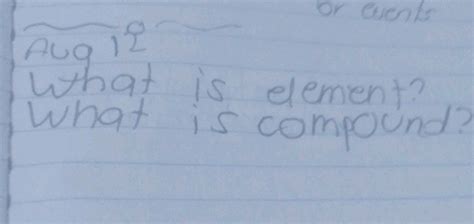 or events
Aug 12
What is element?
What is compound?